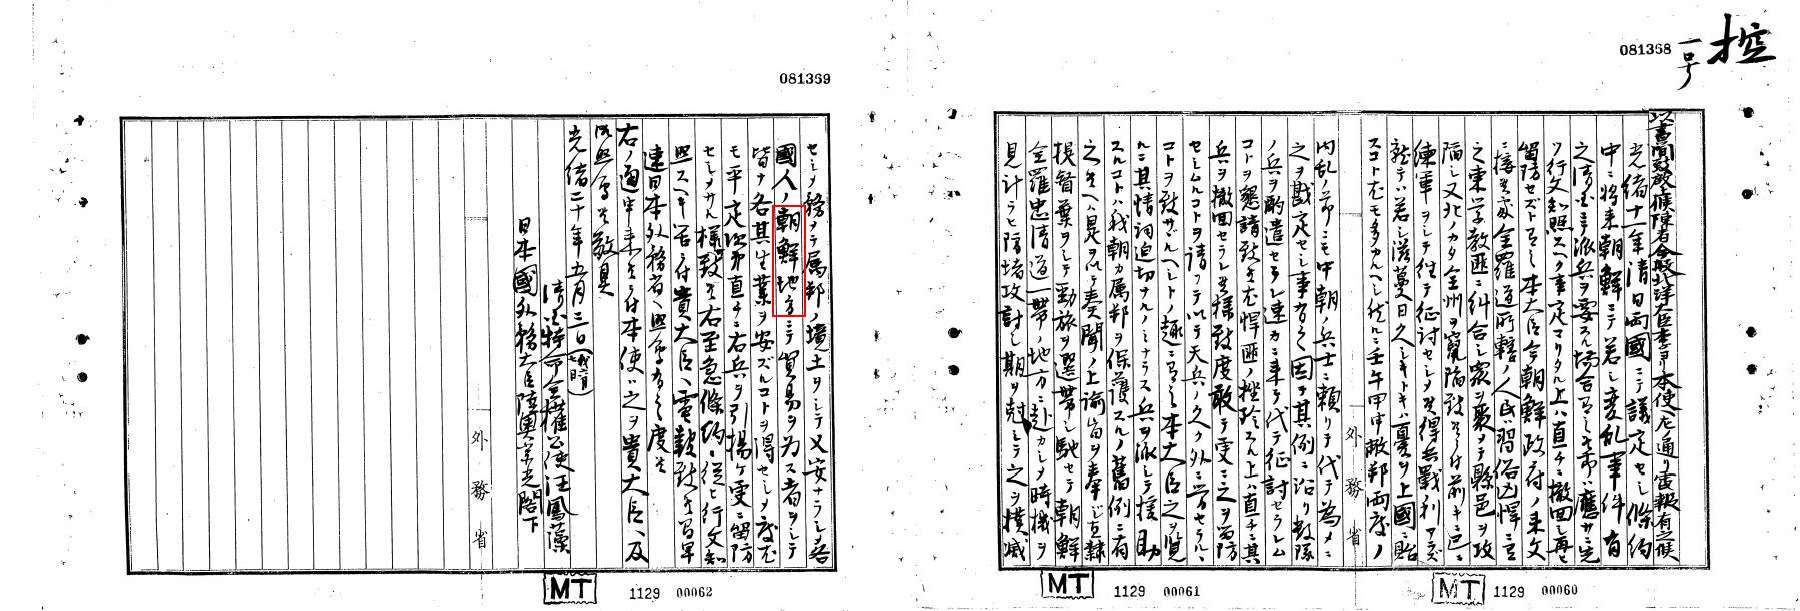 控
一号
081368
以書簡致啓上候陳者今般北洋大臣李ヨリ本使ヘ左ノ通リ電報有之候
光緒十一年清日両國ニテ議定セシ條約
中ニ将来朝鮮ニテ若シ変乱事件有
之清國ニテ派兵ヲ要スル場合アラハ応サニ先
ツ行文知照スヘク事定マリタル上ハ直チニ撤回シ再ヒ
留防セズトアリ本大臣今朝鮮政府ノ来文
ニ接スルニ全羅道所轄ノ人民習俗凶悍ニシテ
東学教匪ニ糾合シ衆ヲ聚メテ縣邑ヲ攻
陥シ又北ノカタ全州ヲ竄陥致シ前キニ
練軍ヲシテ往テ征討セシメ候得共戰利アラズ
就テハ若シ滋蔓日久シキトキハ憂ヲ上國ニ貽
スコト尤モ多カルヘシ然ルニ壬午甲申敝邦両度ノ
内乱ノ節ニモ中朝ノ兵士ニ頼リテ代テ為メニ
之ヲ戡定セシ事有之因テ其例ニ沿リ数隊
ノ兵ヲ酌遣セラレ速カニ来テ代テ征討セラレム
コトヲ懇請致シ尤悍匪ノ挫殄スル上ハ直チニ其
兵ヲ撤回セラレ候様致度敢テ更ニ之ヲ留防
セシムルコトヲ請フテ以テ天兵ノ久ク外ニ労セラルヽ
コトヲ致サザルヘシトノ趣ニアリ本大臣之ヲ覧
ルニ其情詞迫切ナルノミナラス兵ヲ派シテ援助
スルコトハ我朝カ属邦ヲ保護スルノ舊例ニ有
之候ヘハ是ヲ以テ奏聞ノ上諭旨ヲ奉ジ直隷
提督葉ヲシテ勁旅ヲ選帯シ馳セテ朝鮮
全羅忠清道一帯ノ地方ニ赴カシメ時機ヲ
見計ラヒ防堵攻討シ期ヲ尅シテ之ヲ撲滅
外務省
MT
1129 00060
MT
1129 00061
081369
セシメ務メテ属邦ノ境土ヲシテ乂安ナラシメ各
國人ノ朝鮮地方ニテ貿易ヲ為ス者ヲシテ
皆ナ各其生業ヲ安ズルコトヲ得セシメ度尤
モ平定次第直チニ右兵ヲ引揚ケ更ニ留防
セシメサル様致ス右至急條約ニ従ヒ行文知
照スヘキ筈ニ付貴大臣ヘ電報致ス旨早
速日本外務省ヘ照会有之度候
右ノ通申来候ニ付本使ハ之ヲ貴大臣ヘ及
御照会候敬具
光緒二十年五月三日
清國特命全權公使汪鳳藻
日本國外務大臣陸奥宗光閣下
外務省
MT
1129 00062